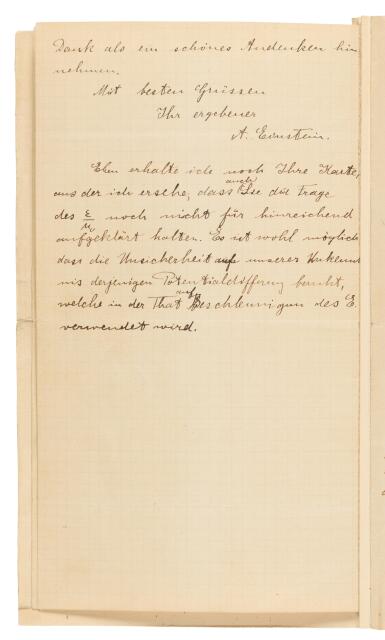 Dank als ein schönes Andenken hin
nehmen.
Mit besten Grüssen
Ihr ergebener
A. Einstein.
Eben erhalte ich noch Ihre Karte,
auch
aus der ich ersehe, dass Sie die Frage
des ε/μ noch nicht für hinreichend
aufgeklärt halten. Es ist wohl möglich
dass die Unsicherheit auf unserer Unkennt
nis derjenigen Potentialdifferenz beruht,
auf
welche in der That Beschleunigun des E.
verwendet wird.